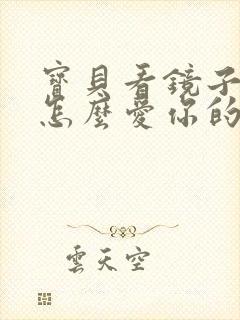 寶貝看鏡子
怎麼愛你的
雲天空